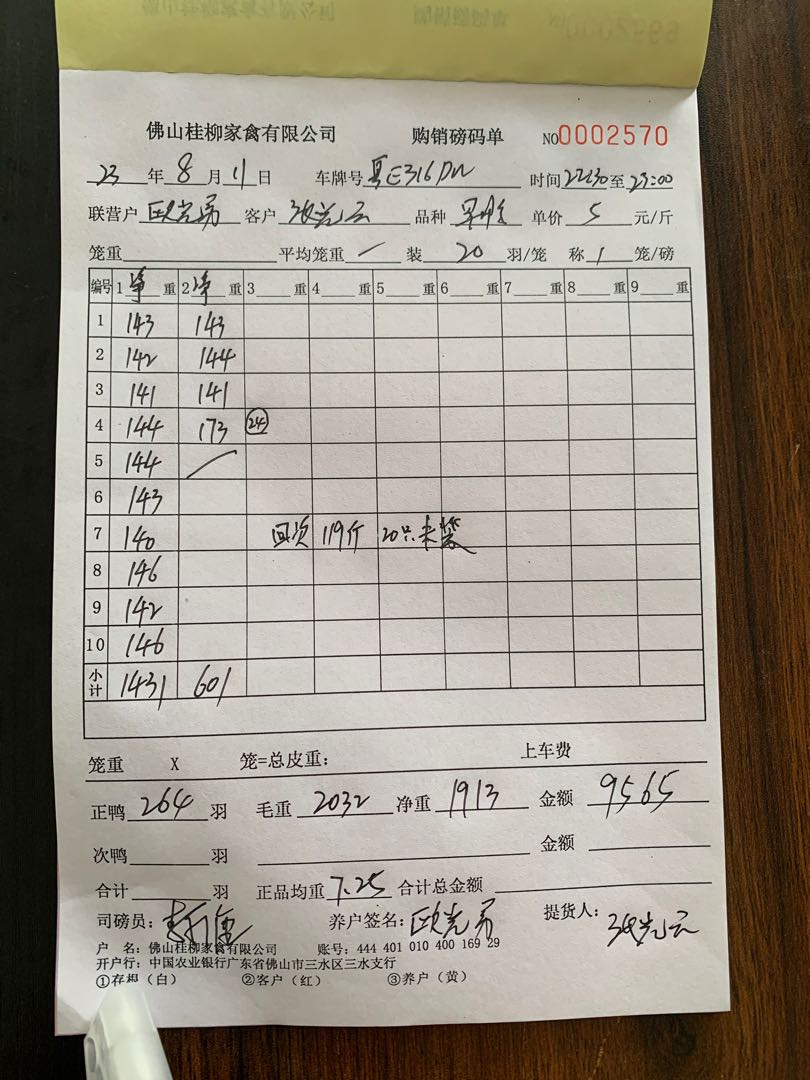 佛山桂柳家禽有限公司 购销磅码单 NO0002570
23年8月11日 车牌号粤E316 时间22:30至23:00
联营户 欧 客户 单价5元/斤 品种
笼重 平均笼重/ 装20羽/笼 称1笼/磅
编号 1净重 2净重 3重 4重 5重 6重 7重 8重 9重
1 143 143
2 142 144
3 141 141
4 144 173 24
5 144 /
6 143
7 140 回 119斤 20只未装
8 146
9 142
10 146
小计 1431 601
笼重 X 笼=总皮重: 上车费
正鸭264羽 毛重2032 净重1913 金额9565
次鸭 羽 金额
合计 羽 正品均重7.25 合计总金额
司磅员: 养户签名:欧 提货人:
户 名:佛山桂柳家禽有限公司 账号:444 401 010 400 169 29
开户行:中国农业银行广东省佛山市三水区三水支行
①存根(白) ②客户(红) ③养户(黄)